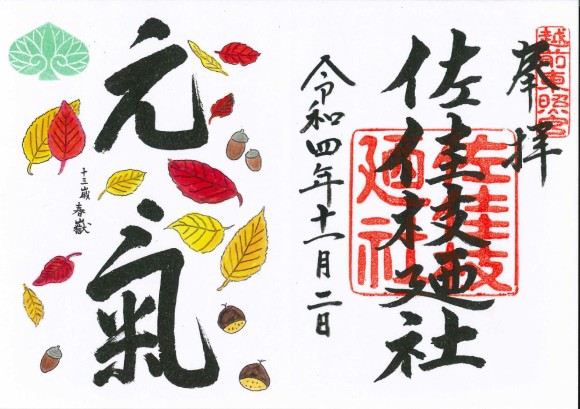 越前東照宮
奉拝
佐佳枝廼社
佐佳枝
廼社
令和四年十一月二日
元氣
十三歳 春嶽